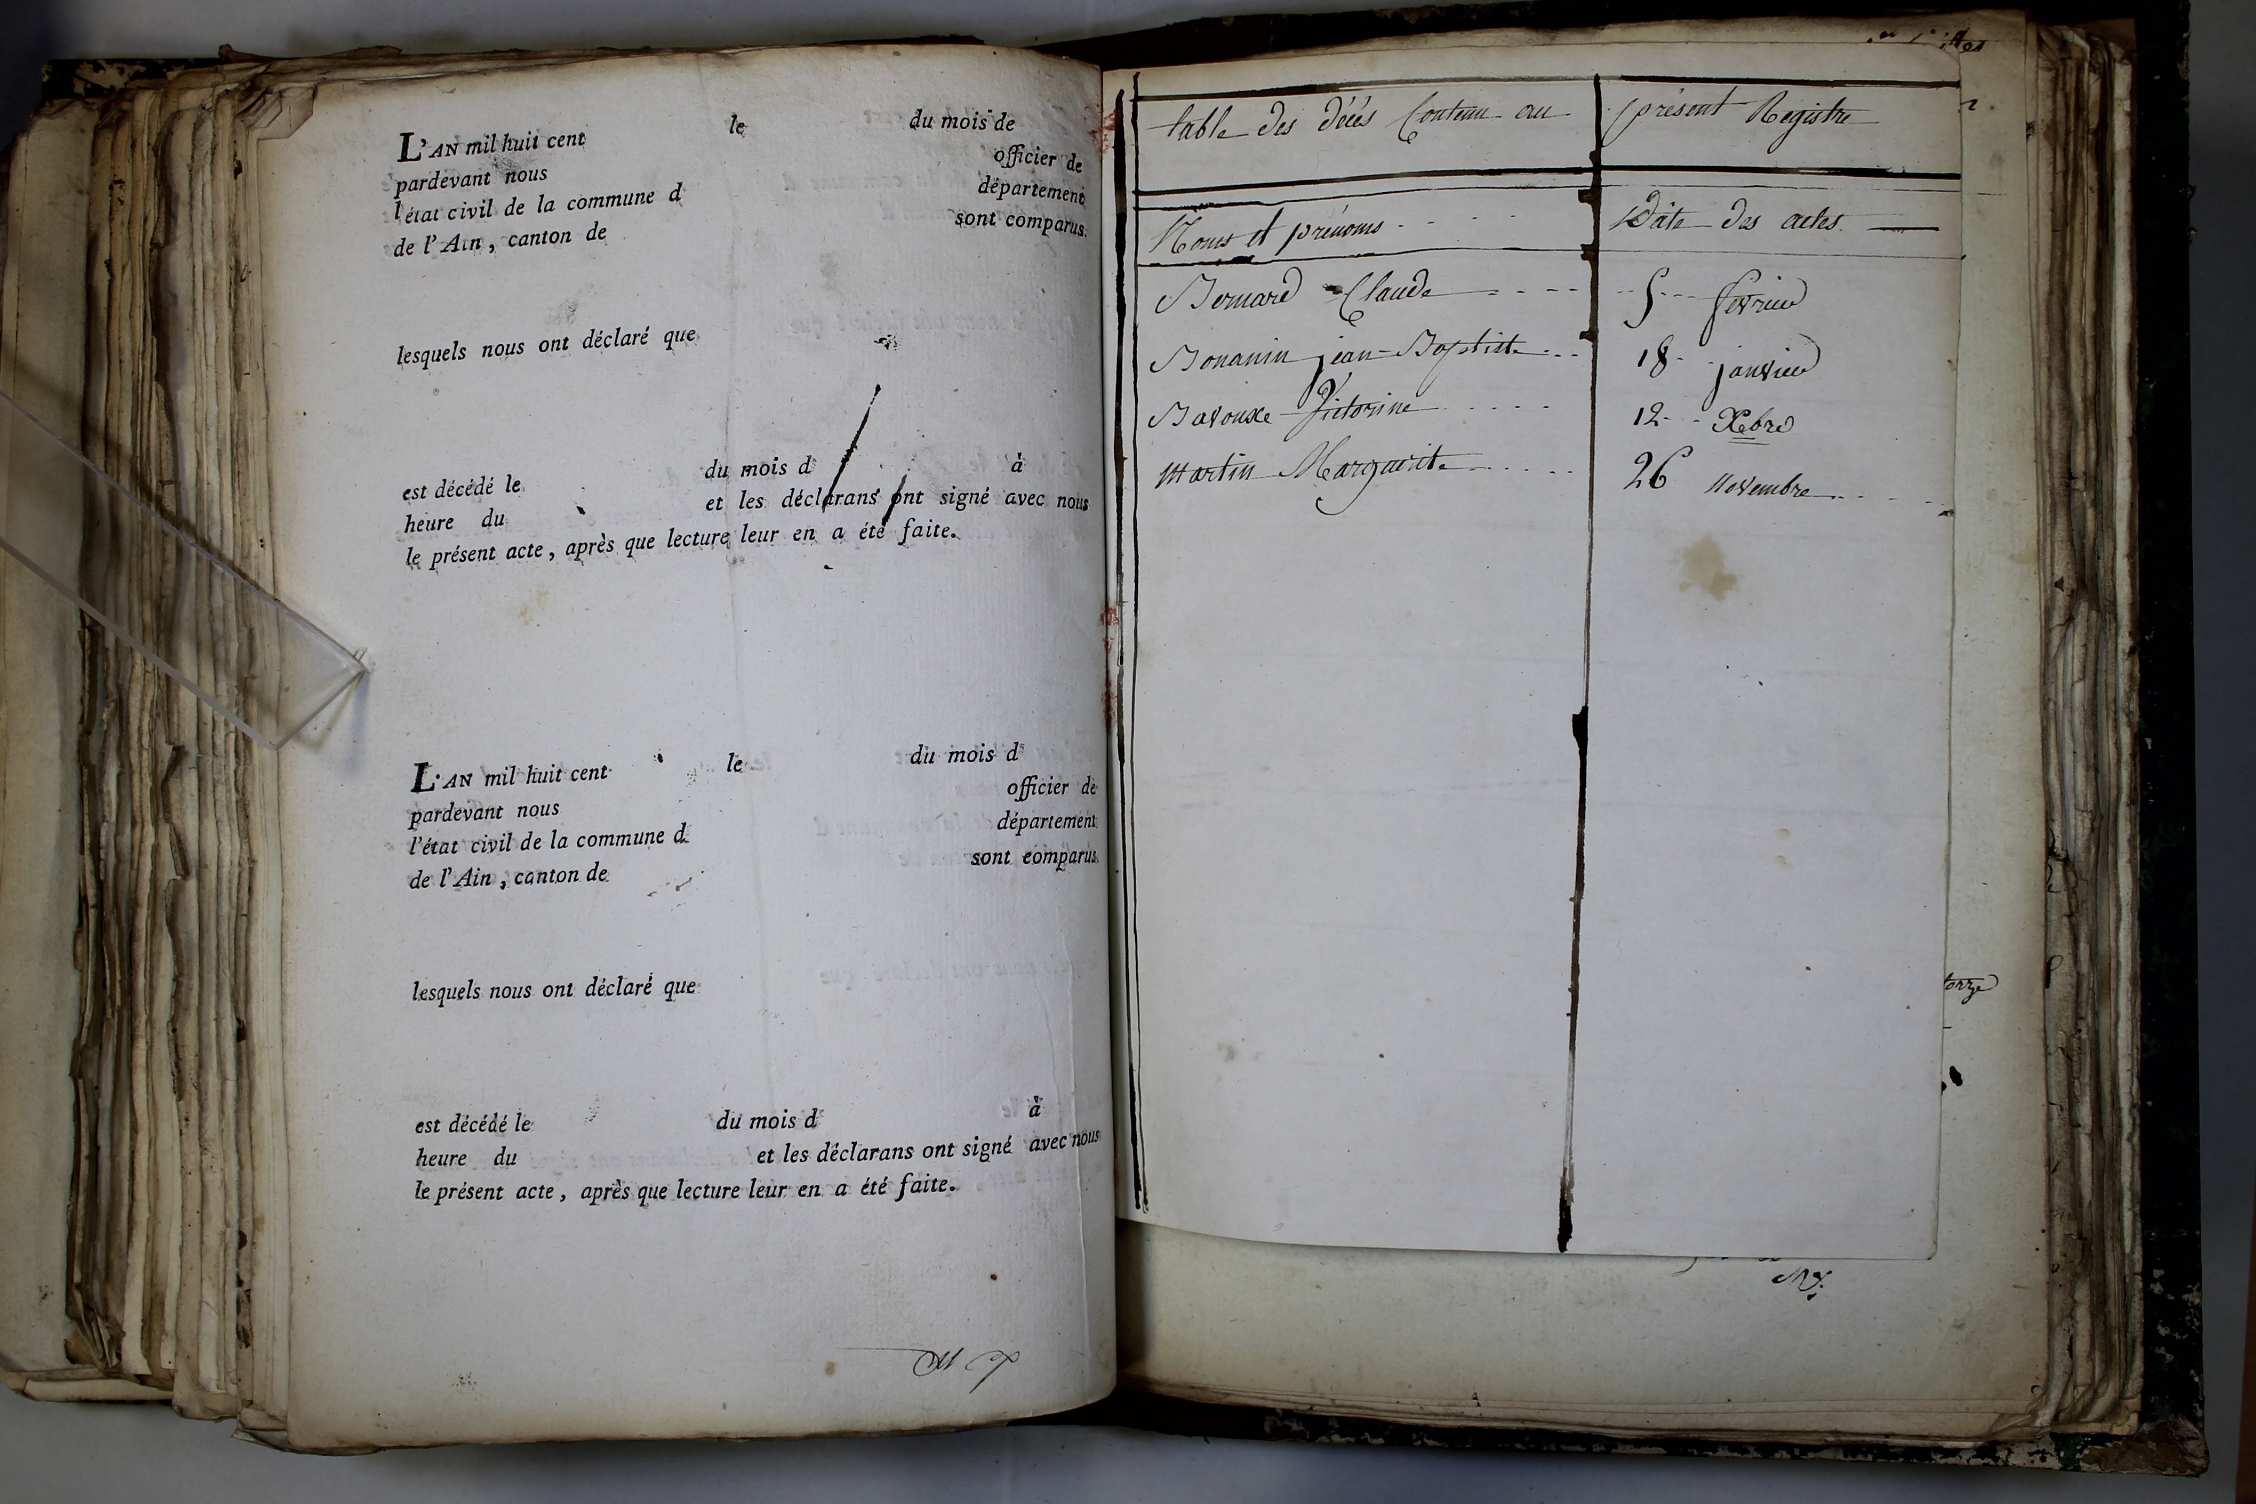 L'AN mil huit cent le du mois de
pardevant nous officier de
l'état civil de la commune d département
de l'Ain, canton de sont comparus
lesquels nous ont déclaré que
est décédé le du mois d à
heure du et les déclarans ont signé avec nous
le présent acte, après que lecture leur en a été faite.
L'AN mil huit cent le du mois d
pardevant nous officier de
l'état civil de la commune d département
de l'Ain, canton de sont comparus
lesquels nous ont déclaré que
est décédé le du mois d à
heure du et les déclarans ont signé avec nous
le présent acte, après que lecture leur en a été faite.
table des décés Contenu au présent Registre
Noms et prénoms Date des actes
Bernard Claude 5 fevrier
Bonanin jean-Baptiste 18 janvier
Bavouxe Victorine 12 Xebre
martin Marguerite 26 Novembre